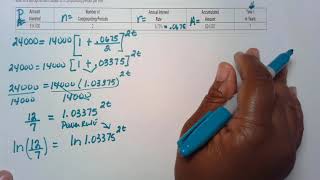 P= Amount Invested n= Number of Compounding Periods Annual Interest Rate A= Accumulated Amount Time t in Years
= .0675
24000 = 14000 [1 + .0675/2]^2t
24000 = 14000 [1 + .03375]^2t
24000/14000 = 14000 (1.03375)^2t/14000
12/7 = 1.03375^2t
Power Rule
ln(12/7) = ln 1.03375^2t